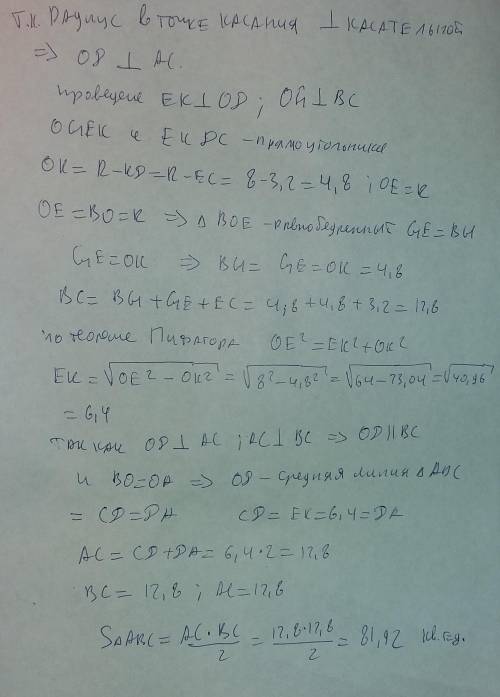 Т.К. РАДИУС В ТОЧКЕ КАСАНИЯ ⊥ КАСАТЕЛЬНОЙ
=> OD ⊥ AC.
проведем EK⊥OD ; OG⊥BC
OGEK и EKDC – прямоугольники
OK = R–KD = R–EC = 8–3,2 = 4,8 ; OE=R
OE = BO = R => Δ BOE – равнобедренный GE=BG
GE=OK => BG = GE = OK = 4,8
BC = BG + GE + EC = 4,8 + 4,8 + 3,2 = 12,8
по теореме Пифагора OE² = EK² + OK²
EK = √OE² – OK² = √8² – 4,8² = √64 – 23,04 = √40,96
= 6,4
ТАК КАК OD ⊥ AC ; AC ⊥ BC => OD || BC
и BO=OA => OD – средняя линия Δ ABC
= CD = DA CD = EK = 6,4 = DA
AC = CD + DA = 6,4·2 = 12,8
BC = 12,8 ; AC = 12,8
SΔABC = AC·BC/2 = 12,8·12,8/2 = 81,92 кв.ед.